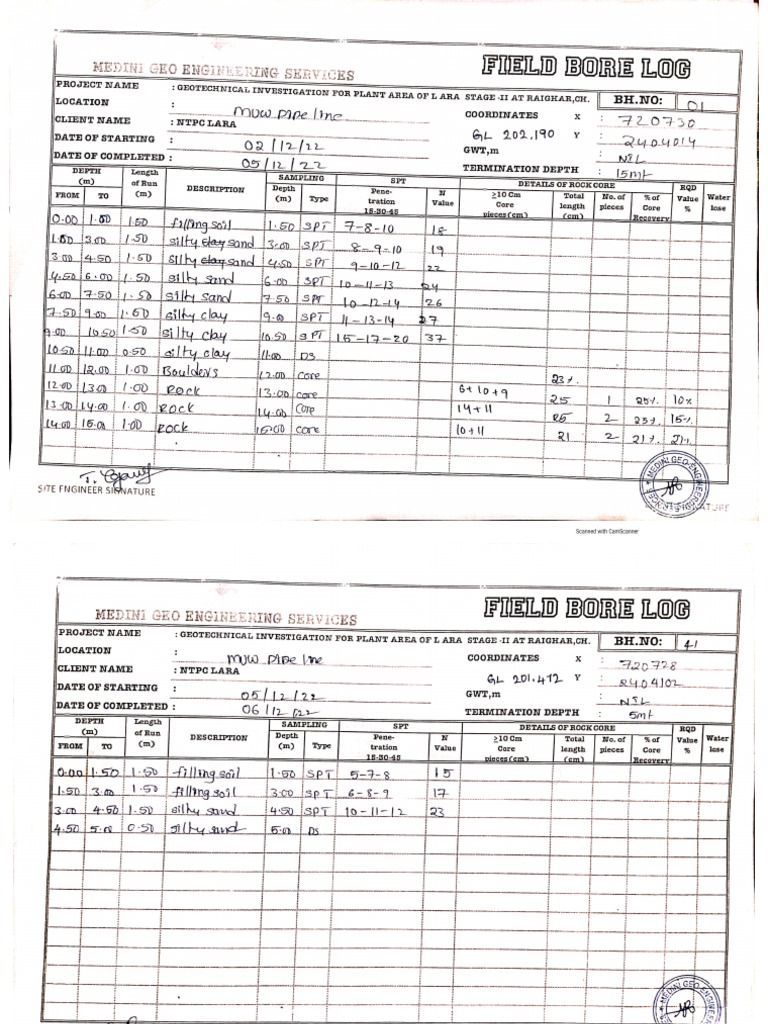 MEDINI GEO ENGINEERING SERVICES FIELD BORE LOG
PROJECT NAME : GEOTECHNICAL INVESTIGATION FOR PLANT AREA OF LARA STAGE -II AT RAIGHAR,CH. BH.NO: 01
LOCATION : MUW Pipe line COORDINATES X : 720730
CLIENT NAME : NTPC LARA GL 202.190 Y : 2404014
DATE OF STARTING : 02/12/22 GWT,m : NIL
DATE OF COMPLETED : 05/12/22 TERMINATION DEPTH : 15mt
DEPTH (m) Length of Run (m) DESCRIPTION SAMPLING SPT DETAILS OF ROCK CORE RQD Value % Water lose
FROM TO Depth (m) Type Pene-tration 15-30-45 N Value ≥10 Cm Core pieces(cm) Total length (cm) No. of pieces % of Core Recovery
0.00 1.50 1.50 filling soil 1.50 SPT 7-8-10 18
1.50 3.00 1.50 silty clay sand 3.00 SPT 8-9-10 19
3.00 4.50 1.50 silty clay sand 4.50 SPT 9-10-12 22
4.50 6.00 1.50 silty sand 6.00 SPT 10-11-13 24
6.00 7.50 1.50 silty sand 7.50 SPT 10-12-14 26
7.50 9.00 1.50 silty clay 9.00 SPT 11-13-14 27
9.00 10.50 1.50 silty clay 10.50 SPT 15-17-20 37
10.50 11.00 0.50 silty clay 11.00 DS
11.00 12.00 1.00 Boulders 12.00 core 23%
12.00 13.00 1.00 Rock 13.00 core 6+10+9 25 1 25% 10%
13.00 14.00 1.00 Rock 14.00 core 14+11 25 2 25% 15%
14.00 15.00 1.00 Rock 15.00 core 10+11 21 2 21% 21%
SITE ENGINEER SIGNATURE
MEDINI GEO-ENGINEERING SERVICES
Scanned with CamScanner
MEDINI GEO ENGINEERING SERVICES FIELD BORE LOG
PROJECT NAME : GEOTECHNICAL INVESTIGATION FOR PLANT AREA OF LARA STAGE -II AT RAIGHAR,CH. BH.NO: 41
LOCATION : MUW Pipe line COORDINATES X : 720728
CLIENT NAME : NTPC LARA GL 201.472 Y : 2404102
DATE OF STARTING : 05/12/22 GWT,m : NIL
DATE OF COMPLETED : 06/12/22 TERMINATION DEPTH : 5mt
DEPTH (m) Length of Run (m) DESCRIPTION SAMPLING SPT DETAILS OF ROCK CORE RQD Value % Water lose
FROM TO Depth (m) Type Pene-tration 15-30-45 N Value ≥10 Cm Core pieces(cm) Total length (cm) No. of pieces % of Core Recovery
0.00 1.50 1.50 filling soil 1.50 SPT 5-7-8 15
1.50 3.00 1.50 filling soil 3.00 SPT 6-8-9 17
3.00 4.50 1.50 silty sand 4.50 SPT 10-11-12 23
4.50 5.00 0.50 silty sand 5.00 DS
MEDINI GEO-ENGINEERING